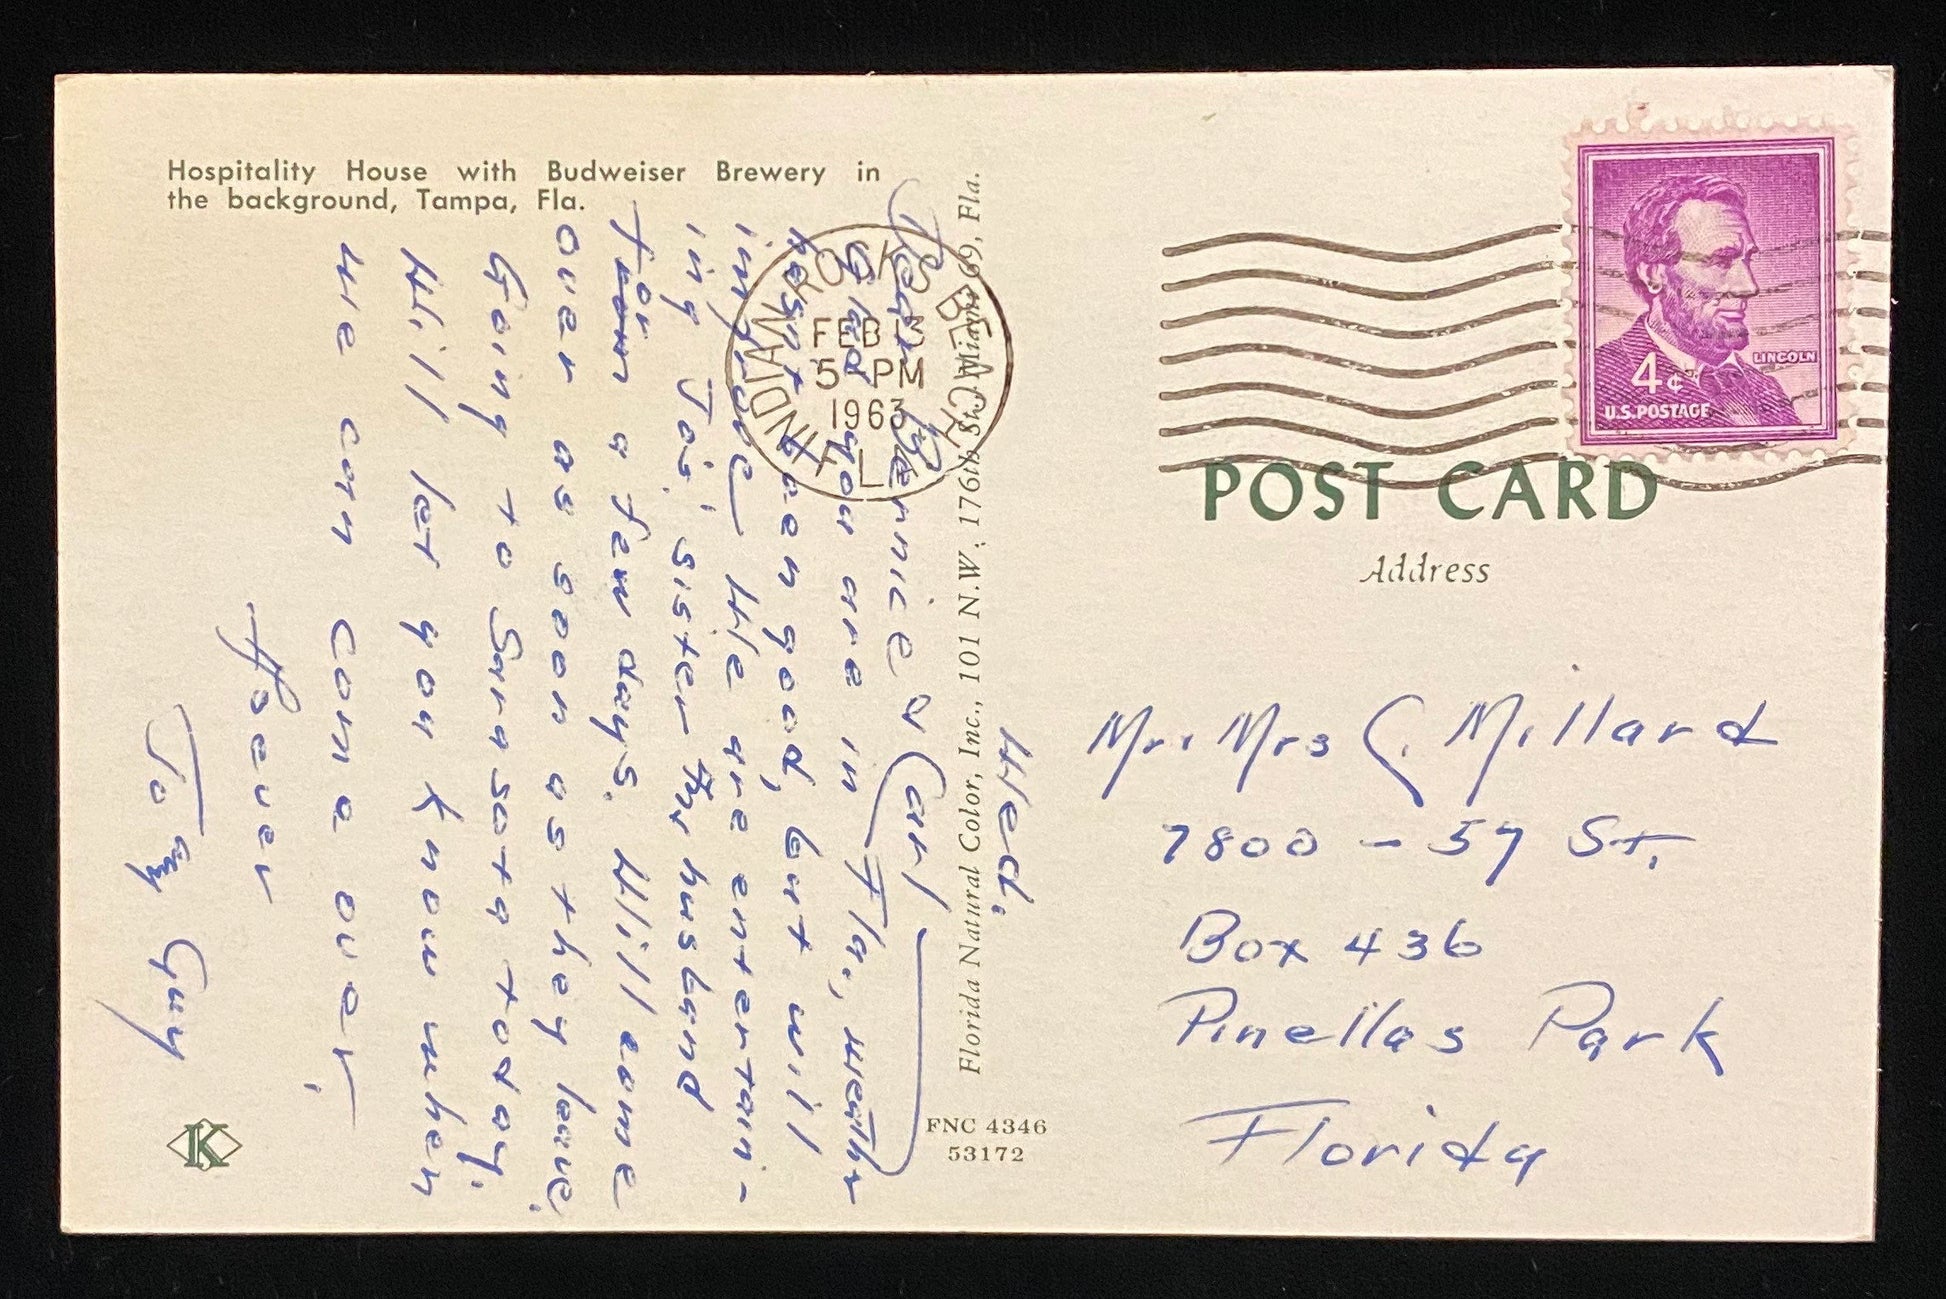 Hospitality House with Budweiser Brewery in
the background, Tampa, Fla.
Wed.
Dear Bernice & Carl
Glad you are in Fla., weather
hasn't been good, but will
improve. We are entertain-
ing Jo's sister & her husband
for a few days. Will come
over as soon as they leave.
Going to Sarasota today.
Will let you know when
we can come over.
Love
Jo & Guy
Florida Natural Color, Inc., 101 N.W. 176th St., Miami 69, Fla.
FNC 4346
53172
K
INDIAN ROCKS BEACH
FEB 13
5 PM
1963
FLA
4¢
LINCOLN
U.S. POSTAGE
POST CARD
Address
Mr. Mrs C. Millard
7800 - 57 St.
Box 436
Pinellas Park
Florida